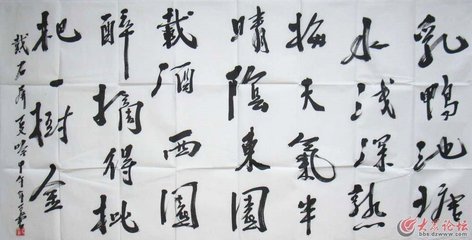 乳鴨池塘
水浅深熟
梅天氣半
晴陰東園
載酒西園
醉摘得枇
杷一樹金
戴石屏夏吟甲午年
大众论坛
bbs.dzwww.com